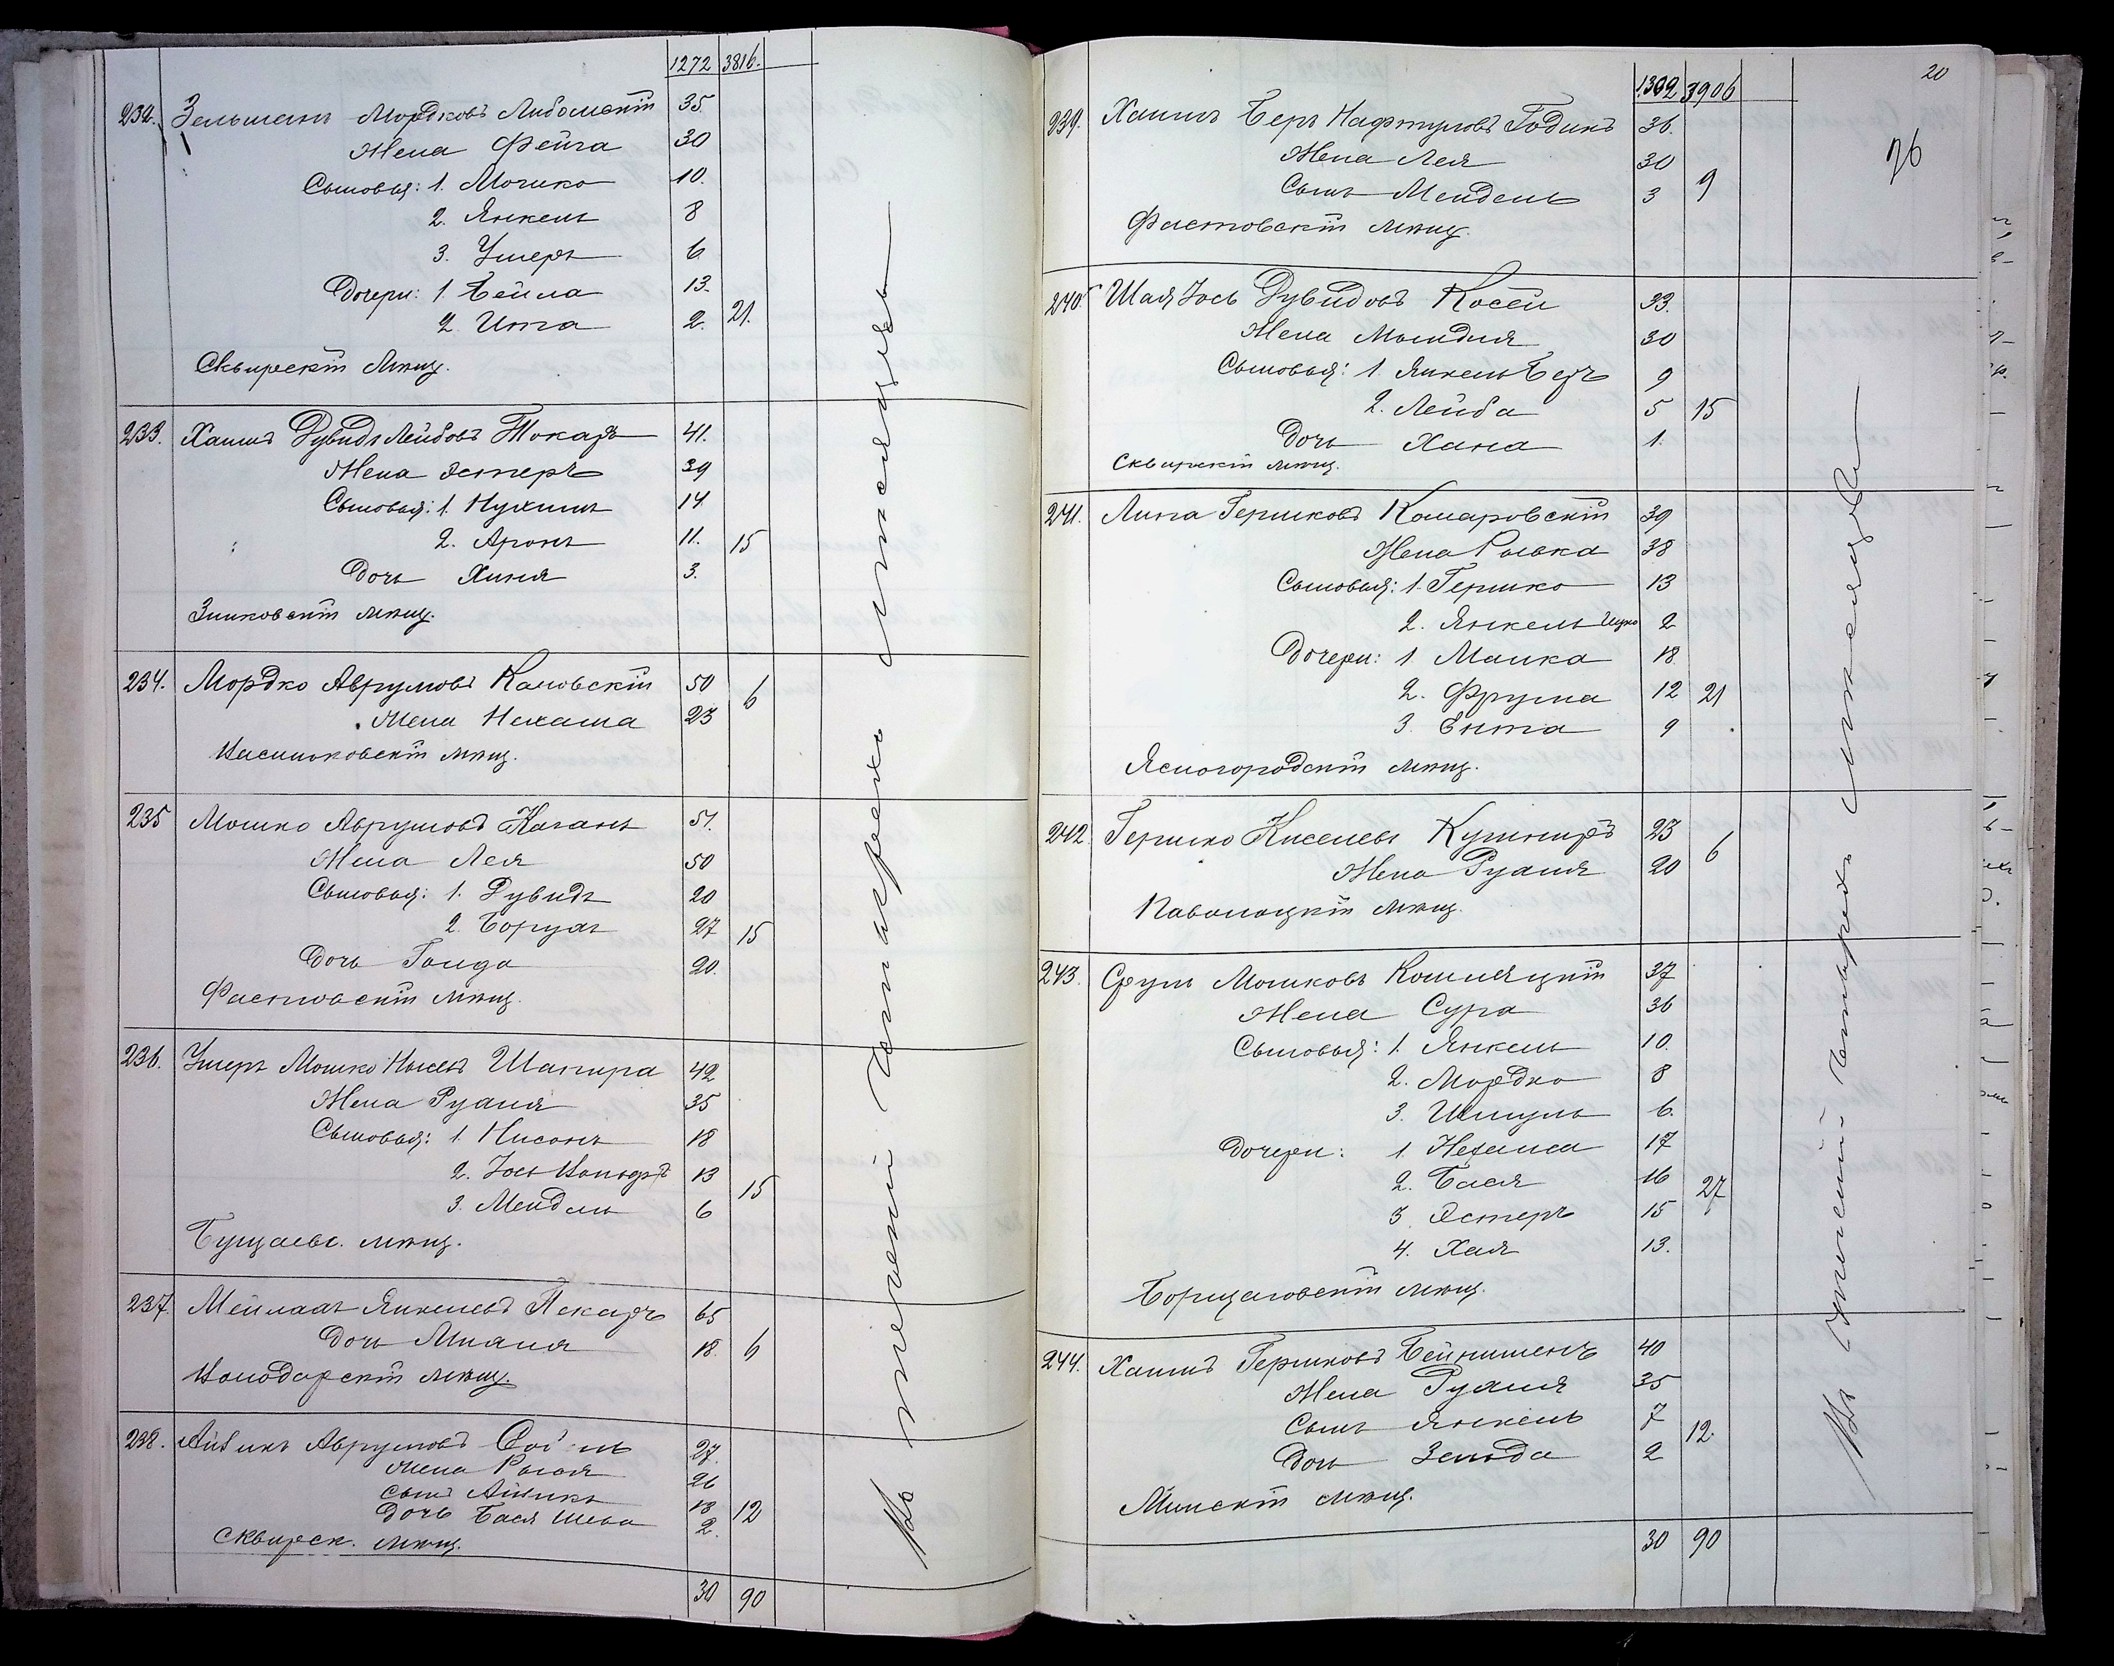 1272 3816.
232. Зельманъ Мордковъ Любомскій 35.
Жена Фейга 30
Сыновья: 1. Мошко 10.
2. Янкель 8
3. Умеръ 6
Дочери: 1. Бейла 13.
2. Ита 2. 21.
Сквирскій мѣщ.
233. Хаимъ Дувидъ Лейбовъ Токарь 41.
Жена Эстеръ 39
Сыновья: 1. Нухимъ 14
2. Аронъ 11. 15
Дочь Хиня 3.
Зиньковскій мѣщ.
234. Мордко Аврумовъ Кановскій 50 6
Жена Нехама 23
мѣщ.
235 Мошко Аврумовъ Каганъ 51.
Жена Лея 50
Сыновья: 1. Дувидъ 20
2. Борухъ 27 15
Дочь Голда 20.
Фастовскій мѣщ.
236. Умеръ Мошко Шапира 42
Жена Рухля 35
Сыновья: 1. Нисонъ 18
2. Іось 13 15
3. Мендель 6
мѣщ.
237. Мейлахъ Янкелевъ Пекарь 65
Дочь 18. 6
Володарскій мѣщ.
238. Айзикъ Аврумовъ 27.
Жена 26
Сынъ 18 12
Дочь Бася Шева 2.
Сквирск. мѣщ.
30 90
Въ теченіи четырехъ мѣсяцевъ
20
1302 3906
26
239. Хаимъ Беръ Нафтуловъ Годикъ 36.
Жена Лея 30
Сынъ Мендель 3 9
Фастовскій мѣщ.
240. Шая Іось Дувидовъ Косой 33.
Жена Мындля 30
Сыновья: 1. Янкель Беръ 9
2. Лейба 5 15
Дочь Хана 1.
Сквирскій мѣщ.
241. Липа Гершковъ Комаровскій 39
Жена Рывка 38
Сыновья: 1. Гершко 13
2. Янкель Ицко 2
Дочери: 1 Малка 18
2. Фрума 12 21
3. Ента 9
Ясногородскій мѣщ.
242. Гершко Киселевъ Кушниръ 23
Жена Рухля 20 6
Паволоцкій мѣщ.
243. Сруль Мошковъ 37
Жена Сура 36
Сыновья: 1. Янкель 10.
2. Мордко 8
3. Шмуль 6.
Дочери: 1. Нехама 17
2. Бася 16 27
3. Эстеръ 15
4. Хая 13.
Борщаговскій мѣщ.
244. Хаимъ Гершковъ 40
Жена Рухля 35
Сынъ Янкель 7 12.
Дочь Зельда 2
Минскій мѣщ.
30 90
Въ теченіи четырехъ мѣсяцевъ